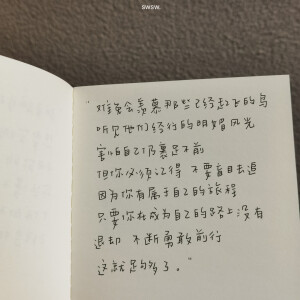 swsw.
“难免会羡慕那些已经起飞的鸟
听见他们经行的明媚风光
害怕自己仍裹足不前
但你必须记得 不要盲目去追
因为你有属于自己的旅程
只要你在成为自己的路上没有
退却 不断勇敢前行
这就足够了。”